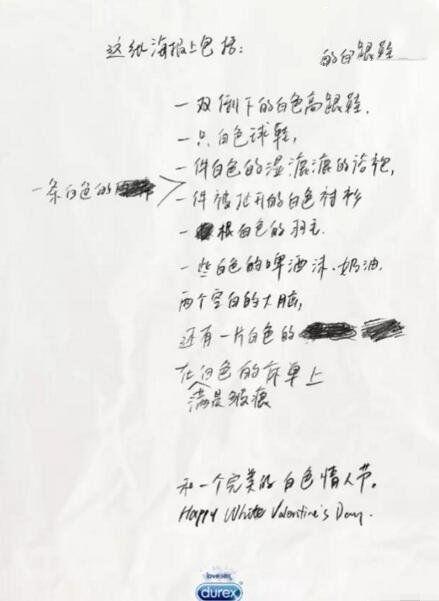 这纸海报上包括:
的白跟鞋
一双倒下的白色高跟鞋,
一只白色球鞋,
一件白色的湿漉漉的浴袍,
一条白色的
一件被扯开的白色衬衫
一根白色的羽毛
一些白色的啤酒沫、奶油,
两个空白的大脑,
还有一片白色的
在白色的床单上
满是痕
和一个完美的白色情人节。
Happy White Valentine's Day.
love sex
durex